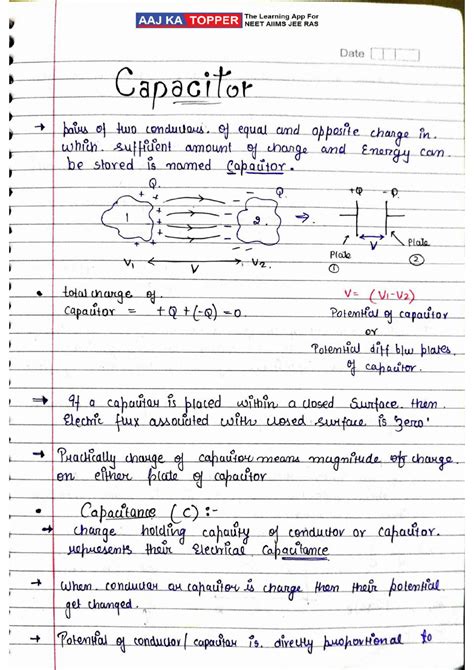 AAJ KA TOPPER The Learning App For
NEET AIIMS JEE RAS
Date
Capacitor
→ pairs of two conductors. of equal and opposite charge in.
which. sufficient amount of charge and Energy can
be stored is named Capacitor.
Q. -Q +Q -Q
1 2. →
V₁ V V₂. V
Plate ① Plate ②
• total charge of.
Capacitor = +Q+(-Q)=0.
V= (V₁-V₂)
Potential of capacitor
or
Potential diff b/w plates
of capacitor.
→ If a capacitor is placed within a closed surface then.
Electric flux associated with closed surface is 'zero'
→ Practically charge of capacitor means magnitude of charge.
on either plate of capacitor
• Capacitance (C) :-
→ charge holding capacity of conductor or capacitor.
represents their Electrical Capacitance
→ When conductor or capacitor is charge then their potential.
get changed.
→ Potential of conductor/capacitor is. directly proportional to